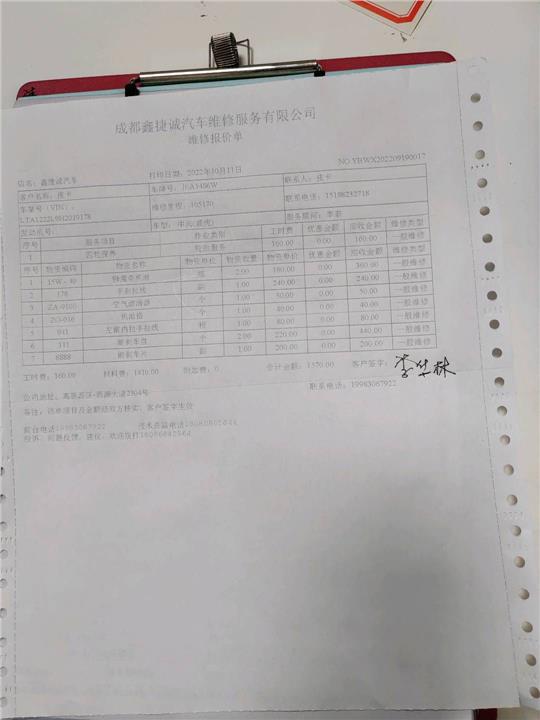 成都鑫捷诚汽车维修服务有限公司
维修报价单
NO:YBWX202209190017
店名：鑫捷诚汽车 打印日期：2022年10月11日
客户名称：
车牌号： 联系人：
车架号（VIN）： 维修里程：105170 联系电话：15198232718
LTA1222L9H2019178
发动机号： 车型： 服务顾问：李毅
序号 服务项目 作业类别 工时费 优惠金额 应收金额 维修类型
1 160.00 0.00 160.00 一般维修
序号 物资编码 物资名称 物资单位 物资数量 物资单价 优惠金额 应收金额 维修类型
1 15W-40 2.00 180.00 0.00 360.00 一般维修
2 178 手刹拉线 1.00 240.00 0.00 240.00 一般维修
3 空气滤清器 个 1.00 50.00 0.00 50.00 一般维修
4 机油格 个 1.00 40.00 0.00 40.00 一般维修
5 941 左前内拉手拉线 1.00 80.00 0.00 80.00 一般维修
6 311 前刹车盘 个 2.00 220.00 0.00 440.00 一般维修
7 8888 前刹车片 副 1.00 200.00 0.00 200.00 一般维修
工时费：160.00 材料费：1410.00 附加费：0 合计金额：1570.00 客户签字：李华林
公司地址：高新西区-西源大道2304号 联系电话：19983067922
备注：该单项目及金额经双方核实，客户签字生效
前台电话19983067922
投诉、问题反馈、建议，欢迎拨打18086842564